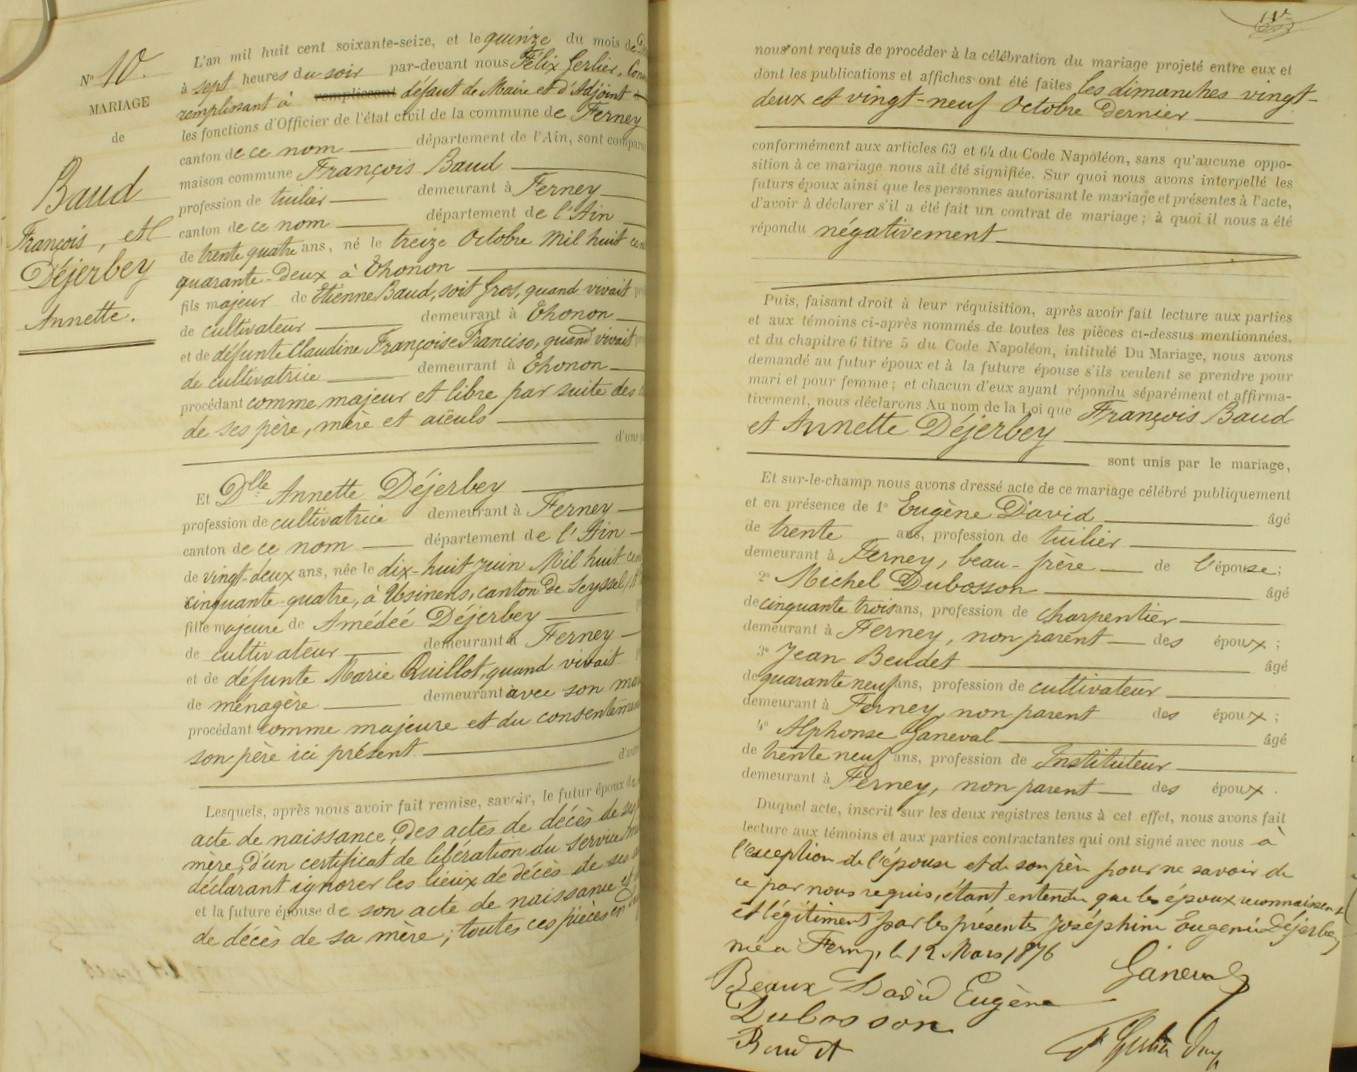 N° 10.
MARIAGE
de
Baud
François, et
Déjerbey
Annette.
L'an mil huit cent soixante-seize, et le quinze du mois de
à sept heures du soir par-devant nous Félix Gerlier,
remplissant à remplissant défaut de Maire et d'Adjoint
les fonctions d'Officier de l'état civil de la commune de Ferney
canton de ce nom département de l'Ain, sont
maison commune François Baud
profession de tuilier demeurant à Ferney
canton de ce nom département de l'Ain
de trente quatre ans, né le treize Octobre Mil huit cent
quarante-deux à Thonon
fils majeur de Etienne Baud, soit Gros, quand vivait
de cultivateur demeurant à Thonon
et de défunte Claudine Françoise Francise, quand vivait
de cultivatrice demeurant à Thonon
procédant comme majeur et libre par suite des
de ses père, mère et aïeuls
d'une
Et Dlle Annette Déjerbey
profession de cultivatrice demeurant à Ferney
canton de ce nom département de l'Ain
de vingt-deux ans, née le dix-huit Juin Mil huit cent
cinquante-quatre, à Usinens, canton de Seyssel
fille majeure de Amédéé Déjerbey
de cultivateur demeurant à Ferney
et de défunte Marie Quillot, quand vivait
de ménagère demeurant avec son
procédant comme majeure et du consentement
son père ici présent
Lesquels, après nous avoir fait remise, savoir, le futur époux de
acte de naissance, des actes de décès de
mère, d'un certificat de libération du service
déclarant ignorer les lieux de décès de ses
et la future épouse de son acte de naissance et
de décès de sa mère; toutes ces pièces en
nous ont requis de procéder à la célébration du mariage projeté entre eux et
dont les publications et affiches ont été faites les dimanches vingt-
deux et vingt-neuf Octobre dernier
conformément aux articles 63 et 64 du Code Napoléon, sans qu'aucune oppo-
sition à ce mariage nous ait été signifiée. Sur quoi nous avons interpellé les
futurs époux ainsi que les personnes autorisant le mariage et présentes à l'acte,
d'avoir à déclarer s'il a été fait un contrat de mariage; à quoi il nous a été
répondu négativement
Puis, faisant droit à leur réquisition, après avoir fait lecture aux parties
et aux témoins ci-après nommés de toutes les pièces ci-dessus mentionnées,
et du chapitre 6 titre 5 du Code Napoléon, intitulé Du Mariage, nous avons
demandé au futur époux et à la future épouse s'ils veulent se prendre pour
mari et pour femme; et chacun d'eux ayant répondu séparément et affirma-
tivement, nous déclarons Au nom de la Loi que François Baud
et Annette Déjerbey
sont unis par le mariage,
Et sur-le-champ nous avons dressé acte de ce mariage célébré publiquement
et en présence de 1° Eugène David âgé
de trente ans, profession de tuilier
demeurant à Ferney, beau-frère de l'épouse;
2° Michel Dubosson âgé
de cinquante trois ans, profession de charpentier
demeurant à Ferney, non parent des époux;
3° Jean Beudet âgé
de quarante neuf ans, profession de cultivateur
demeurant à Ferney, non parent des époux;
4° Alphonse Ganeval âgé
de trente neuf ans, profession de Instituteur
demeurant à Ferney, non parent des époux.
Duquel acte, inscrit sur les deux registres tenus à cet effet, nous avons fait
lecture aux témoins et aux parties contractantes qui ont signé avec nous à
l'exception de l'épouse et de son père pour ne savoir de
ce par nous requis, étant entendu que les époux reconnaissent
et légitiment par les présentes Joséphine Eugénie Déjerbey
née à Ferney, le 12 Mars 1876
Ganeval
Beaux David Eugène
Dubosson
Baud